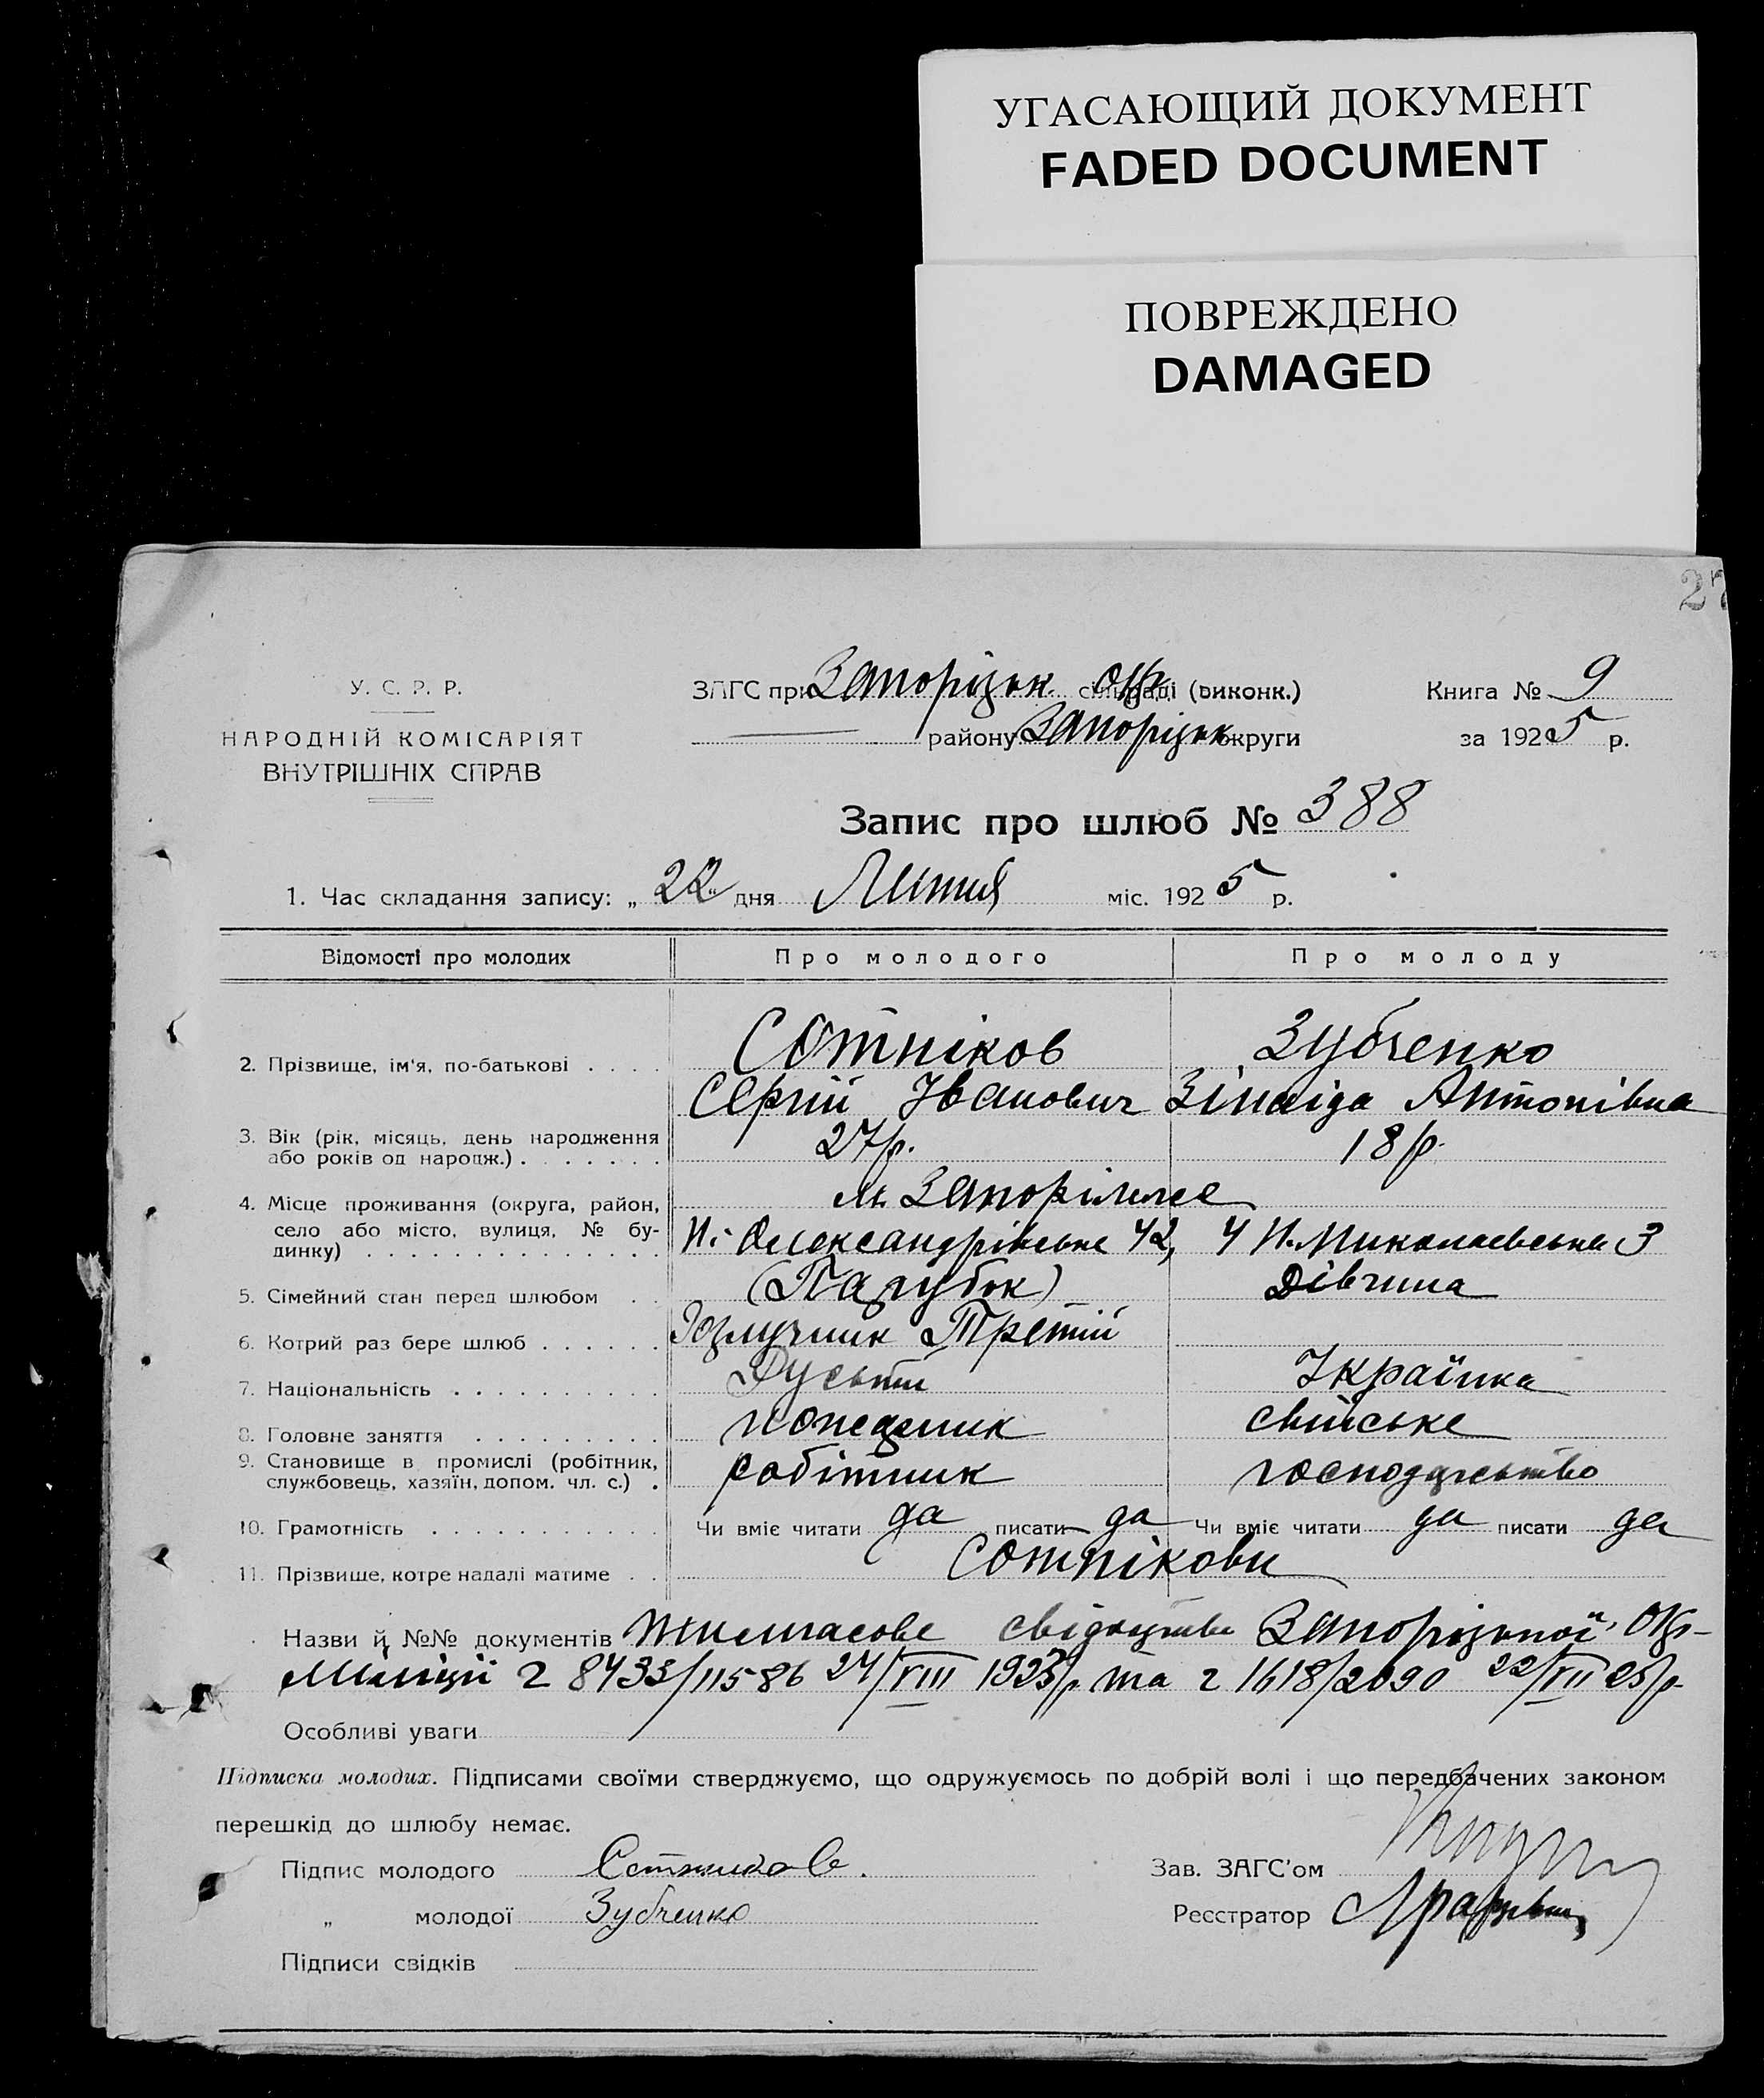 УГАСАЮЩИЙ ДОКУМЕНТ
FADED DOCUMENT
ПОВРЕЖДЕНО
DAMAGED
27
У. С. Р. Р.
НАРОДНІЙ КОМІСАРІЯТ
ВНУТРІШНІХ СПРАВ
ЗАГС при Запорізьк окр сільраді (виконк.)
району Запорізьк округи
Книга № 9
за 1925 р.
Запис про шлюб № 388
1. Час складання запису: „ 22 " дня Липня міс. 1925 р.
Відомості про молодих Про молодого Про молоду
2. Прізвище, ім'я, по-батькові . . . . Сотніков Зубченко
Сергій Іванович Зінаіда Антонівна
3. Вік (рік, місяць, день народження
або років од народж.) . . . . . . . 27 р. 18 р.
4. Місце проживання (округа, район,
село або місто, вулиця, № бу-
динку) . . . . . . . . . . . . . .
м. Запоріжже
Олександрівське 42, Миколаевська 3
5. Сімейний стан перед шлюбом . . (Парубок) Дівчина
6. Котрий раз бере шлюб . . . . . . Розлучник Третій
7. Національність . . . . . . . . . . Руський Українка
8. Головне заняття . . . . . . . . . свійське
9. Становище в промислі (робітник,
службовець, хазяїн, допом. чл. с.) . робітник господарство
10. Грамотність . . . . . . . . . . . Чи вміє читати да писати да Чи вміє читати да писати да
11. Прізвище, котре надалі матиме . . Сотнікови
Назви й №№ документів свідоцтва Запорізької Окр-
Міліції 8433/11586 27/VIII 1923 р. та 1618/2090 22/VII 25 р.
Особливі уваги
Підписка молодих. Підписами своїми стверджуємо, що одружуємось по добрій волі і що передбачених законом
перешкід до шлюбу немає.
Підпис молодого Сотников.
„ молодої Зубченко
Підписи свідків
Зав. ЗАГС'ом
Реєстратор